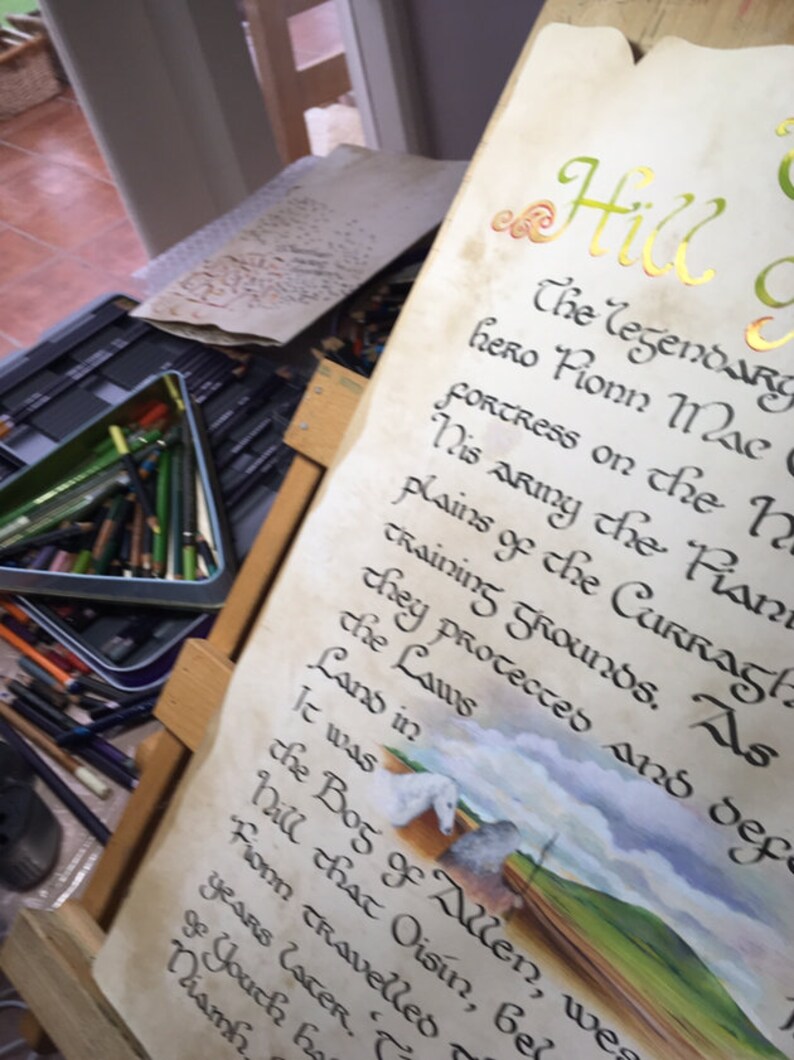 Hill
The legendary
hero Fionn Mac
fortress on the
His army the Fiann
plains of the Curragh
training grounds. As
they protected and defe
the Laws
Land in
It was
the Bog of Allen, wes
hill that Oisín, bel
Fionn travelled
years later.
of Youth
Niamh